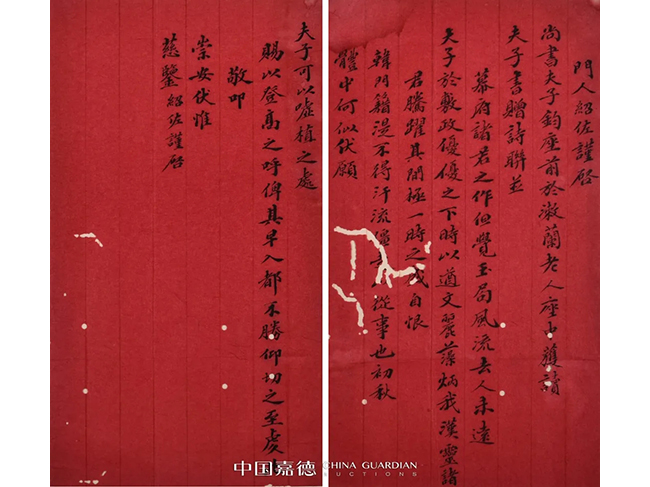 門人紹佐謹啓
尚書夫子鈞座前於漱蘭老人座中獲讀
夫子書贈詩聯並
幕府諸君之作但覺玉局風流去人未遠
夫子於敷政優優之下時以遒文麗藻炳我漢靈諸
君騰躍其間極一時之盛自恨
韓門籍湜不得汗流僵從事也初秋
體中何似伏願
夫子可以噓植之處
賜以登高之呼俾其早入都不勝仰切之至虔
敬叩
崇安伏惟
慈鑒紹佐謹啓
中国嘉德 CHINA GUARDIAN
AUCTIONS